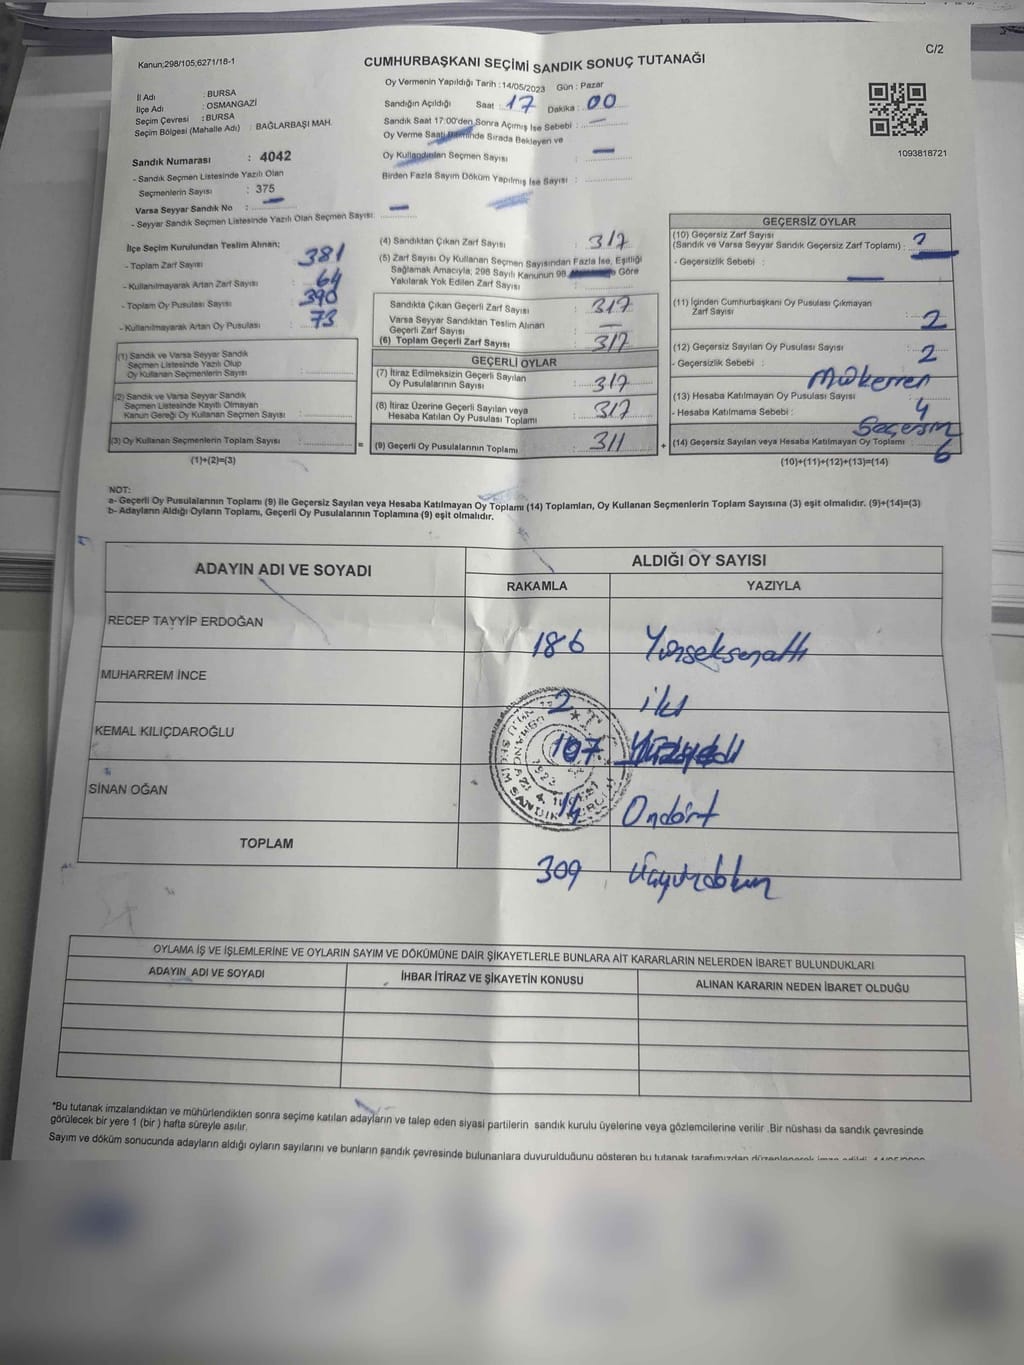 Kanun;298/105;6271/18-1
CUMHURBAŞKANI SEÇİMİ SANDIK SONUÇ TUTANAĞI
C/2
Oy Vermenin Yapıldığı Tarih :14/05/2023 Gün : Pazar
İl Adı : BURSA
İlçe Adı : OSMANGAZİ
Seçim Çevresi : BURSA
Seçim Bölgesi (Mahalle Adı) : BAĞLARBAŞI MAH.
Sandığın Açıldığı Saat : 17 Dakika : 00
Sandık Saat 17:00'den Sonra Açımış İse Sebebi :
Oy Verme Saati Bitiminde Sırada Bekleyen ve
Oy Kullandırılan Seçmen Sayısı :
Birden Fazla Sayım Döküm Yapılmış İse Sayısı :
1093818721
Sandık Numarası : 4042
- Sandık Seçmen Listesinde Yazılı Olan
Seçmenlerin Sayısı : 375
Varsa Seyyar Sandık No :
- Seyyar Sandık Seçmen Listesinde Yazılı Olan Seçmen Sayısı:
İlçe Seçim Kurulundan Teslim Alınan:
- Toplam Zarf Sayısı : 381
- Kullanılmayarak Artan Zarf Sayısı : 64
- Toplam Oy Pusulası Sayısı : 390
- Kullanılmayarak Artan Oy Pusulası : 73
(1) Sandık ve Varsa Seyyar Sandık
Seçmen Listesinde Yazılı Olup
Oy Kullanan Seçmenlerin Sayısı :
(2) Sandık ve Varsa Seyyar Sandık
Seçmen Listesinde Kayıtlı Olmayan
Kanun Gereği Oy Kullanan Seçmen Sayısı :
(3) Oy Kullanan Seçmenlerin Toplam Sayısı : =
(1)+(2)=(3)
(4) Sandıktan Çıkan Zarf Sayısı : 317
(5) Zarf Sayısı Oy Kullanan Seçmen Sayısından Fazla İse, Eşitliği
Sağlamak Amacıyla, 298 Sayılı Kanunun 98. Göre
Yakılarak Yok Edilen Zarf Sayısı :
Sandıkta Çıkan Geçerli Zarf Sayısı : 317
Varsa Seyyar Sandıktan Teslim Alınan
Geçerli Zarf Sayısı :
(6) Toplam Geçerli Zarf Sayısı : 317
GEÇERLİ OYLAR
(7) İtiraz Edilmeksizin Geçerli Sayılan
Oy Pusulalarının Sayısı : 317
(8) İtiraz Üzerine Geçerli Sayılan veya
Hesaba Katılan Oy Pusulası Toplamı : 317
(9) Geçerli Oy Pusulalarının Toplamı : 311 +
GEÇERSİZ OYLAR
(10) Geçersiz Zarf Sayısı
(Sandık ve Varsa Seyyar Sandık Geçersiz Zarf Toplamı) :
- Geçersizlik Sebebi :
(11) İçinden Cumhurbaşkanı Oy Pusulası Çıkmayan
Zarf Sayısı : 2
(12) Geçersiz Sayılan Oy Pusulası Sayısı : 2
- Geçersizlik Sebebi : Mükerrer
(13) Hesaba Katılmayan Oy Pusulası Sayısı : 4
- Hesaba Katılmama Sebebi :
(14) Geçersiz Sayılan veya Hesaba Katılmayan Oy Toplamı : 6
(10)+(11)+(12)+(13)=(14)
NOT:
a- Geçerli Oy Pusulalarının Toplamı (9) ile Geçersiz Sayılan veya Hesaba Katılmayan Oy Toplamı (14) Toplamları, Oy Kullanan Seçmenlerin Toplam Sayısına (3) eşit olmalıdır. (9)+(14)=(3)
b- Adayların Aldığı Oyların Toplamı, Geçerli Oy Pusulalarının Toplamına (9) eşit olmalıdır.
ADAYIN ADI VE SOYADI ALDIĞI OY SAYISI
RAKAMLA YAZIYLA
RECEP TAYYİP ERDOĞAN 186 Yüzseksenaltı
MUHARREM İNCE 2 iki
KEMAL KILIÇDAROĞLU 107
SİNAN OĞAN 14 Ondört
TOPLAM 309 üçyüzdokuz
OYLAMA İŞ VE İŞLEMLERİNE VE OYLARIN SAYIM VE DÖKÜMÜNE DAİR ŞİKAYETLERLE BUNLARA AİT KARARLARIN NELERDEN İBARET BULUNDUKLARI
ADAYIN ADI VE SOYADI İHBAR İTİRAZ VE ŞİKAYETİN KONUSU ALINAN KARARIN NEDEN İBARET OLDUĞU
*Bu tutanak imzalandıktan ve mühürlendikten sonra seçime katılan adayların ve talep eden siyasi partilerin sandık kurulu üyelerine veya gözlemcilerine verilir .Bir nüshası da sandık çevresinde
görülecek bir yere 1 (bir ) hafta süreyle asılır.
Sayım ve döküm sonucunda adayların aldığı oyların sayılarını ve bunların sandık çevresinde bulunanlara duyurulduğunu gösteren bu tutanak tarafımızdan